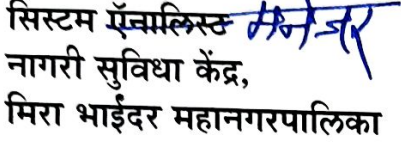 सिस्टम ऍनालिस्ट मॅनेजर
नागरी सुविधा केंद्र,
मिरा भाईंदर महानगरपालिका